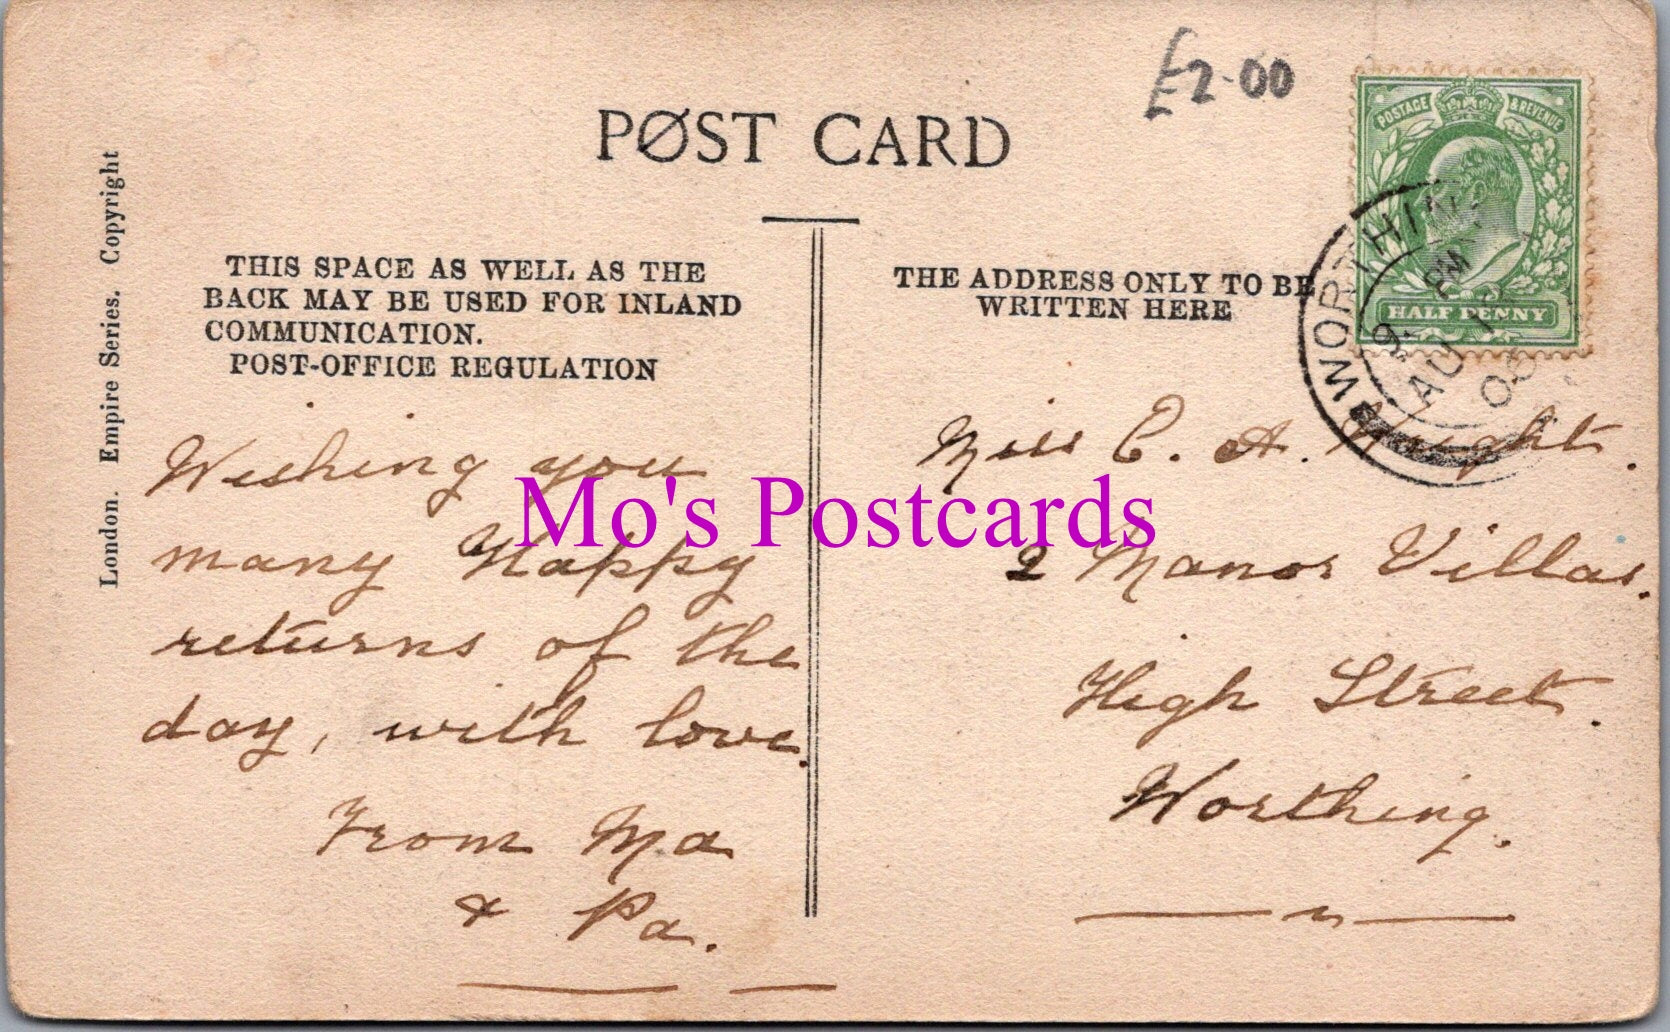 £2-00
POSTAGE & REVENUE
HALF PENNY
WORTHING
PM
AU
POST CARD
London. Empire Series. Copyright
THIS SPACE AS WELL AS THE
BACK MAY BE USED FOR INLAND
COMMUNICATION.
POST-OFFICE REGULATION
Wishing you
many Happy
returns of the
day, with love.
From Ma
& Pa.
THE ADDRESS ONLY TO BE
WRITTEN HERE
Miss C. A.
2 Manor Villas.
High Street.
Worthing.
Mo's Postcards